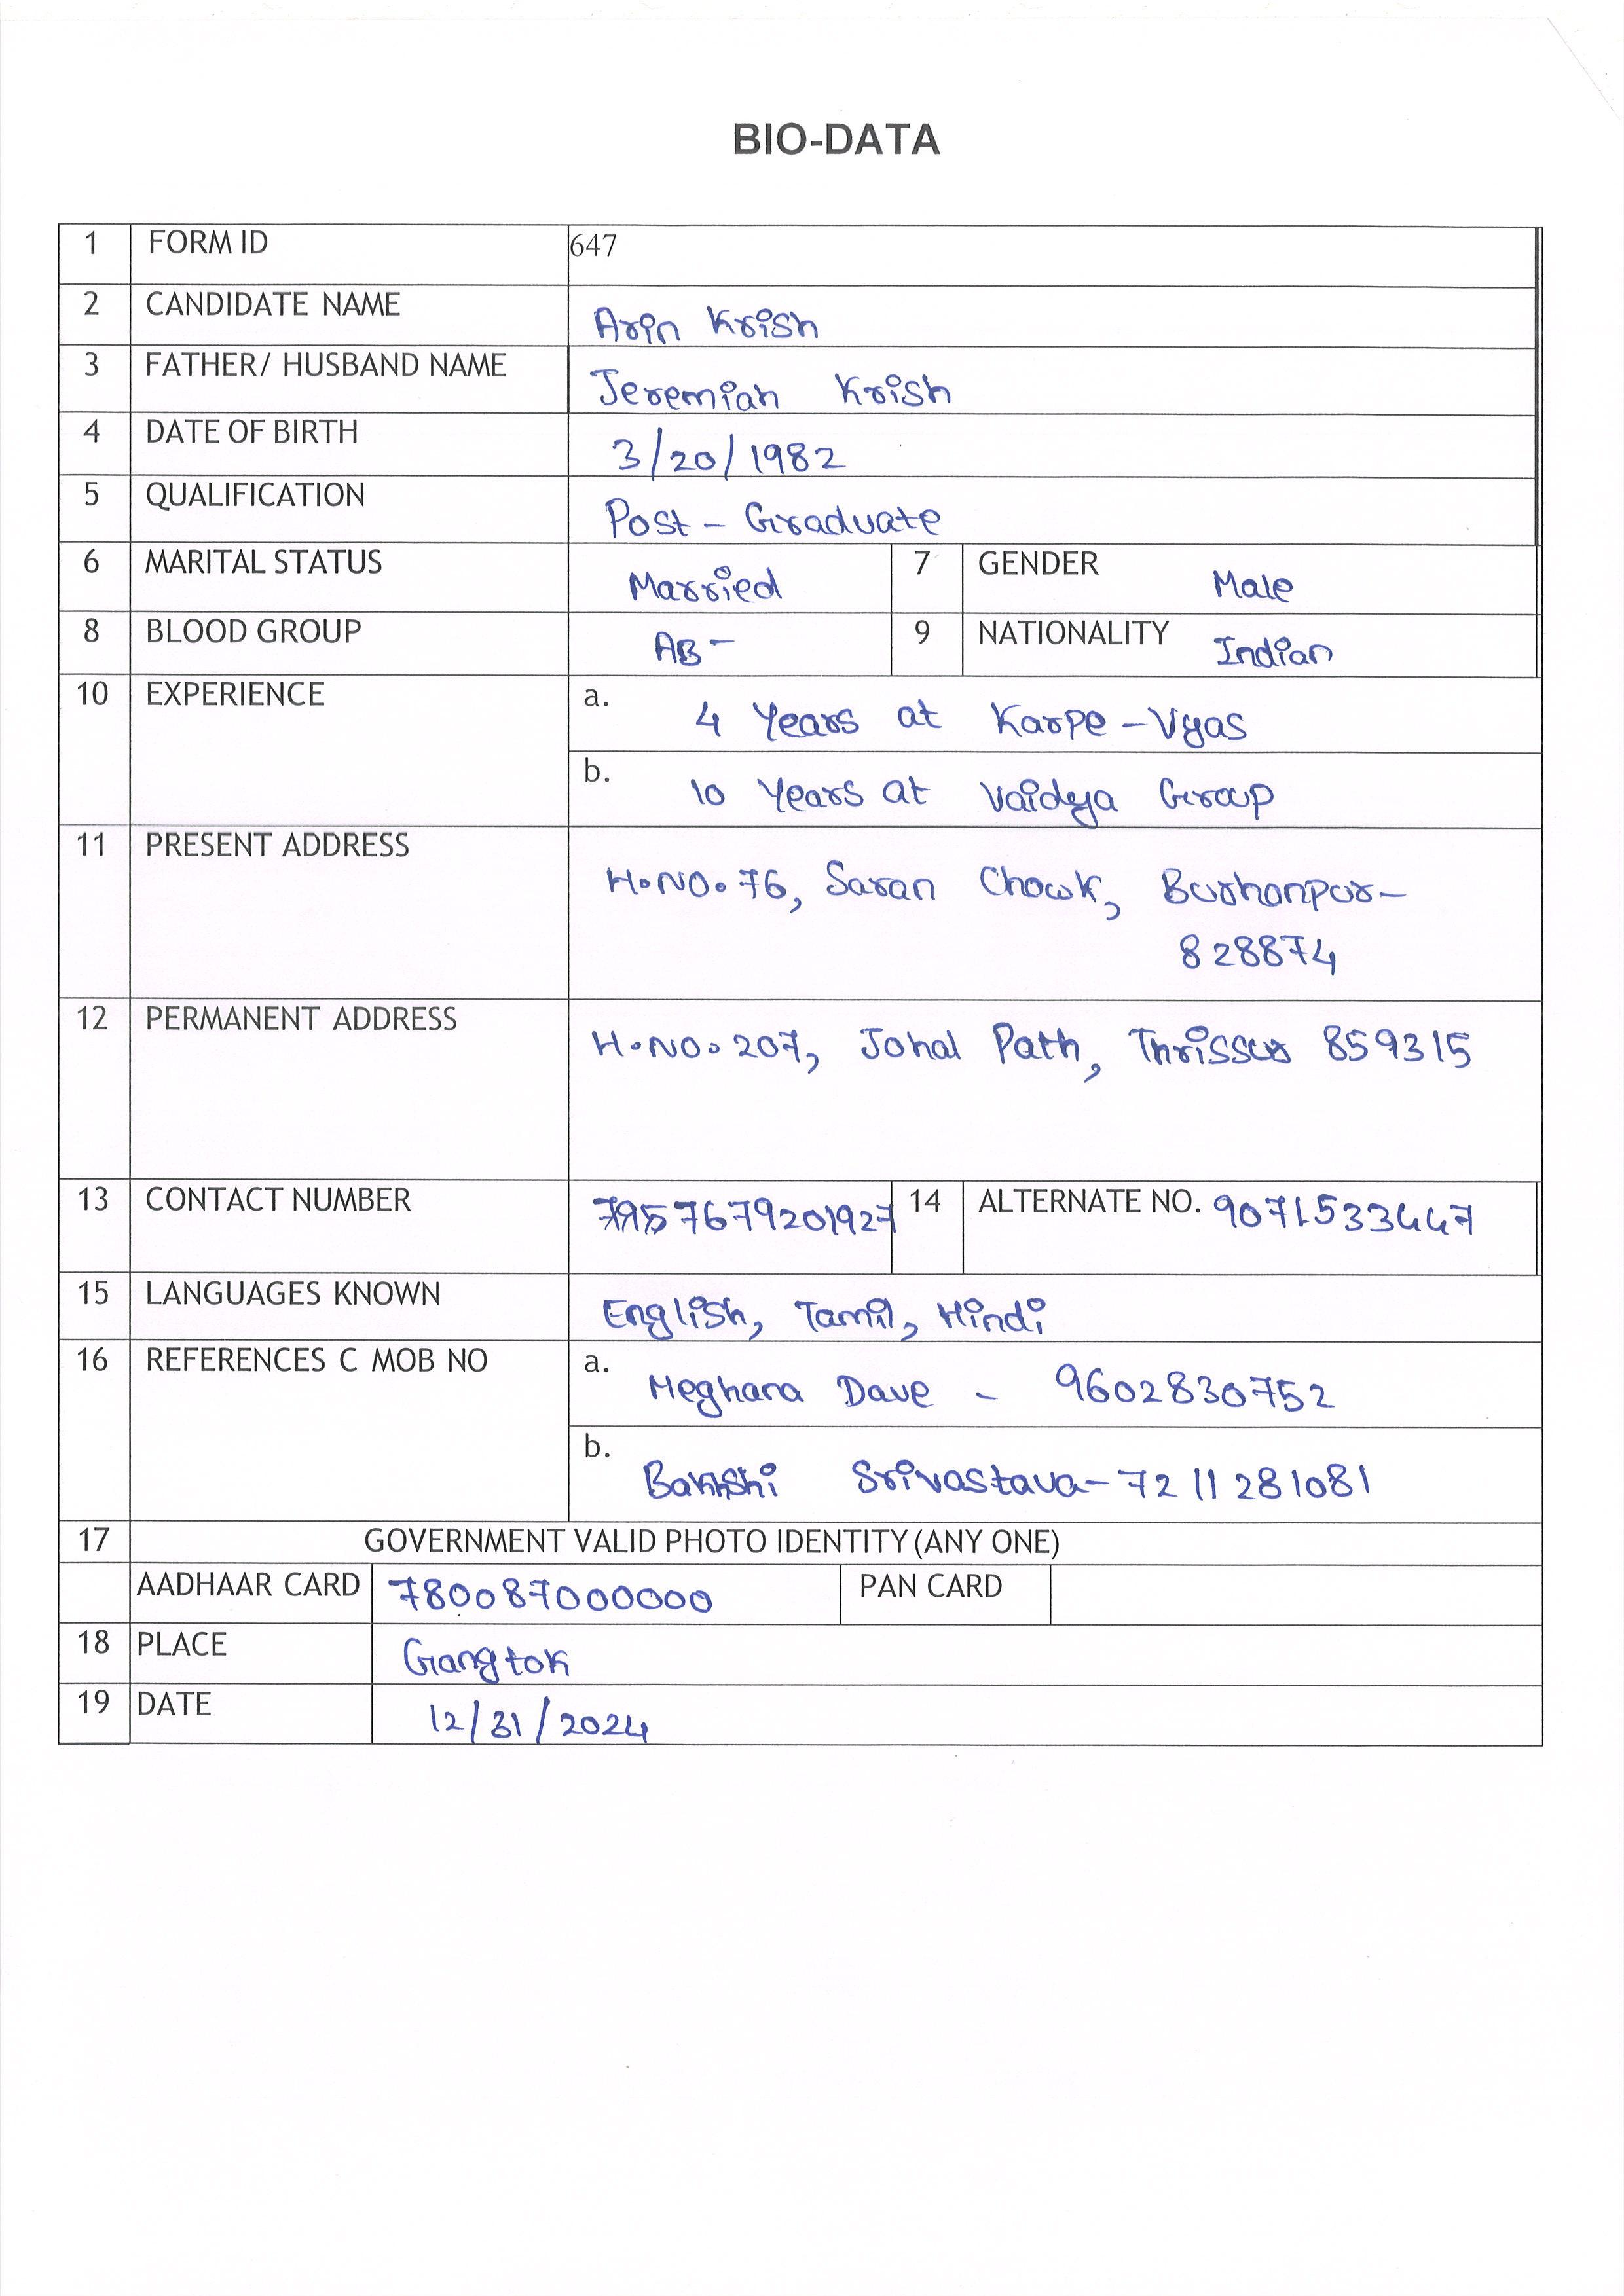 BIO-DATA
1 FORM ID 647
2 CANDIDATE NAME Arin Krish
3 FATHER/ HUSBAND NAME Jeremiah Krish
4 DATE OF BIRTH 3/20/1982
5 QUALIFICATION Post-Graduate
6 MARITAL STATUS Married 7 GENDER Male
8 BLOOD GROUP AB- 9 NATIONALITY Indian
10 EXPERIENCE a. 4 Years at Karpe-Vyas
b. 10 Years at Vaidya Group
11 PRESENT ADDRESS H.NO.76, Saran Chowk, Burhanpur-
828874
12 PERMANENT ADDRESS H.NO.207, Johal Path, Thrissur 859315
13 CONTACT NUMBER 7679201927 14 ALTERNATE NO. 9071533447
15 LANGUAGES KNOWN English, Tamil, Hindi
16 REFERENCES C MOB NO a. Meghana Dave - 9602830752
b. Srivastava-7211281081
17 GOVERNMENT VALID PHOTO IDENTITY (ANY ONE)
AADHAAR CARD 780087000000 PAN CARD
18 PLACE Gangtok
19 DATE 12/31/2024